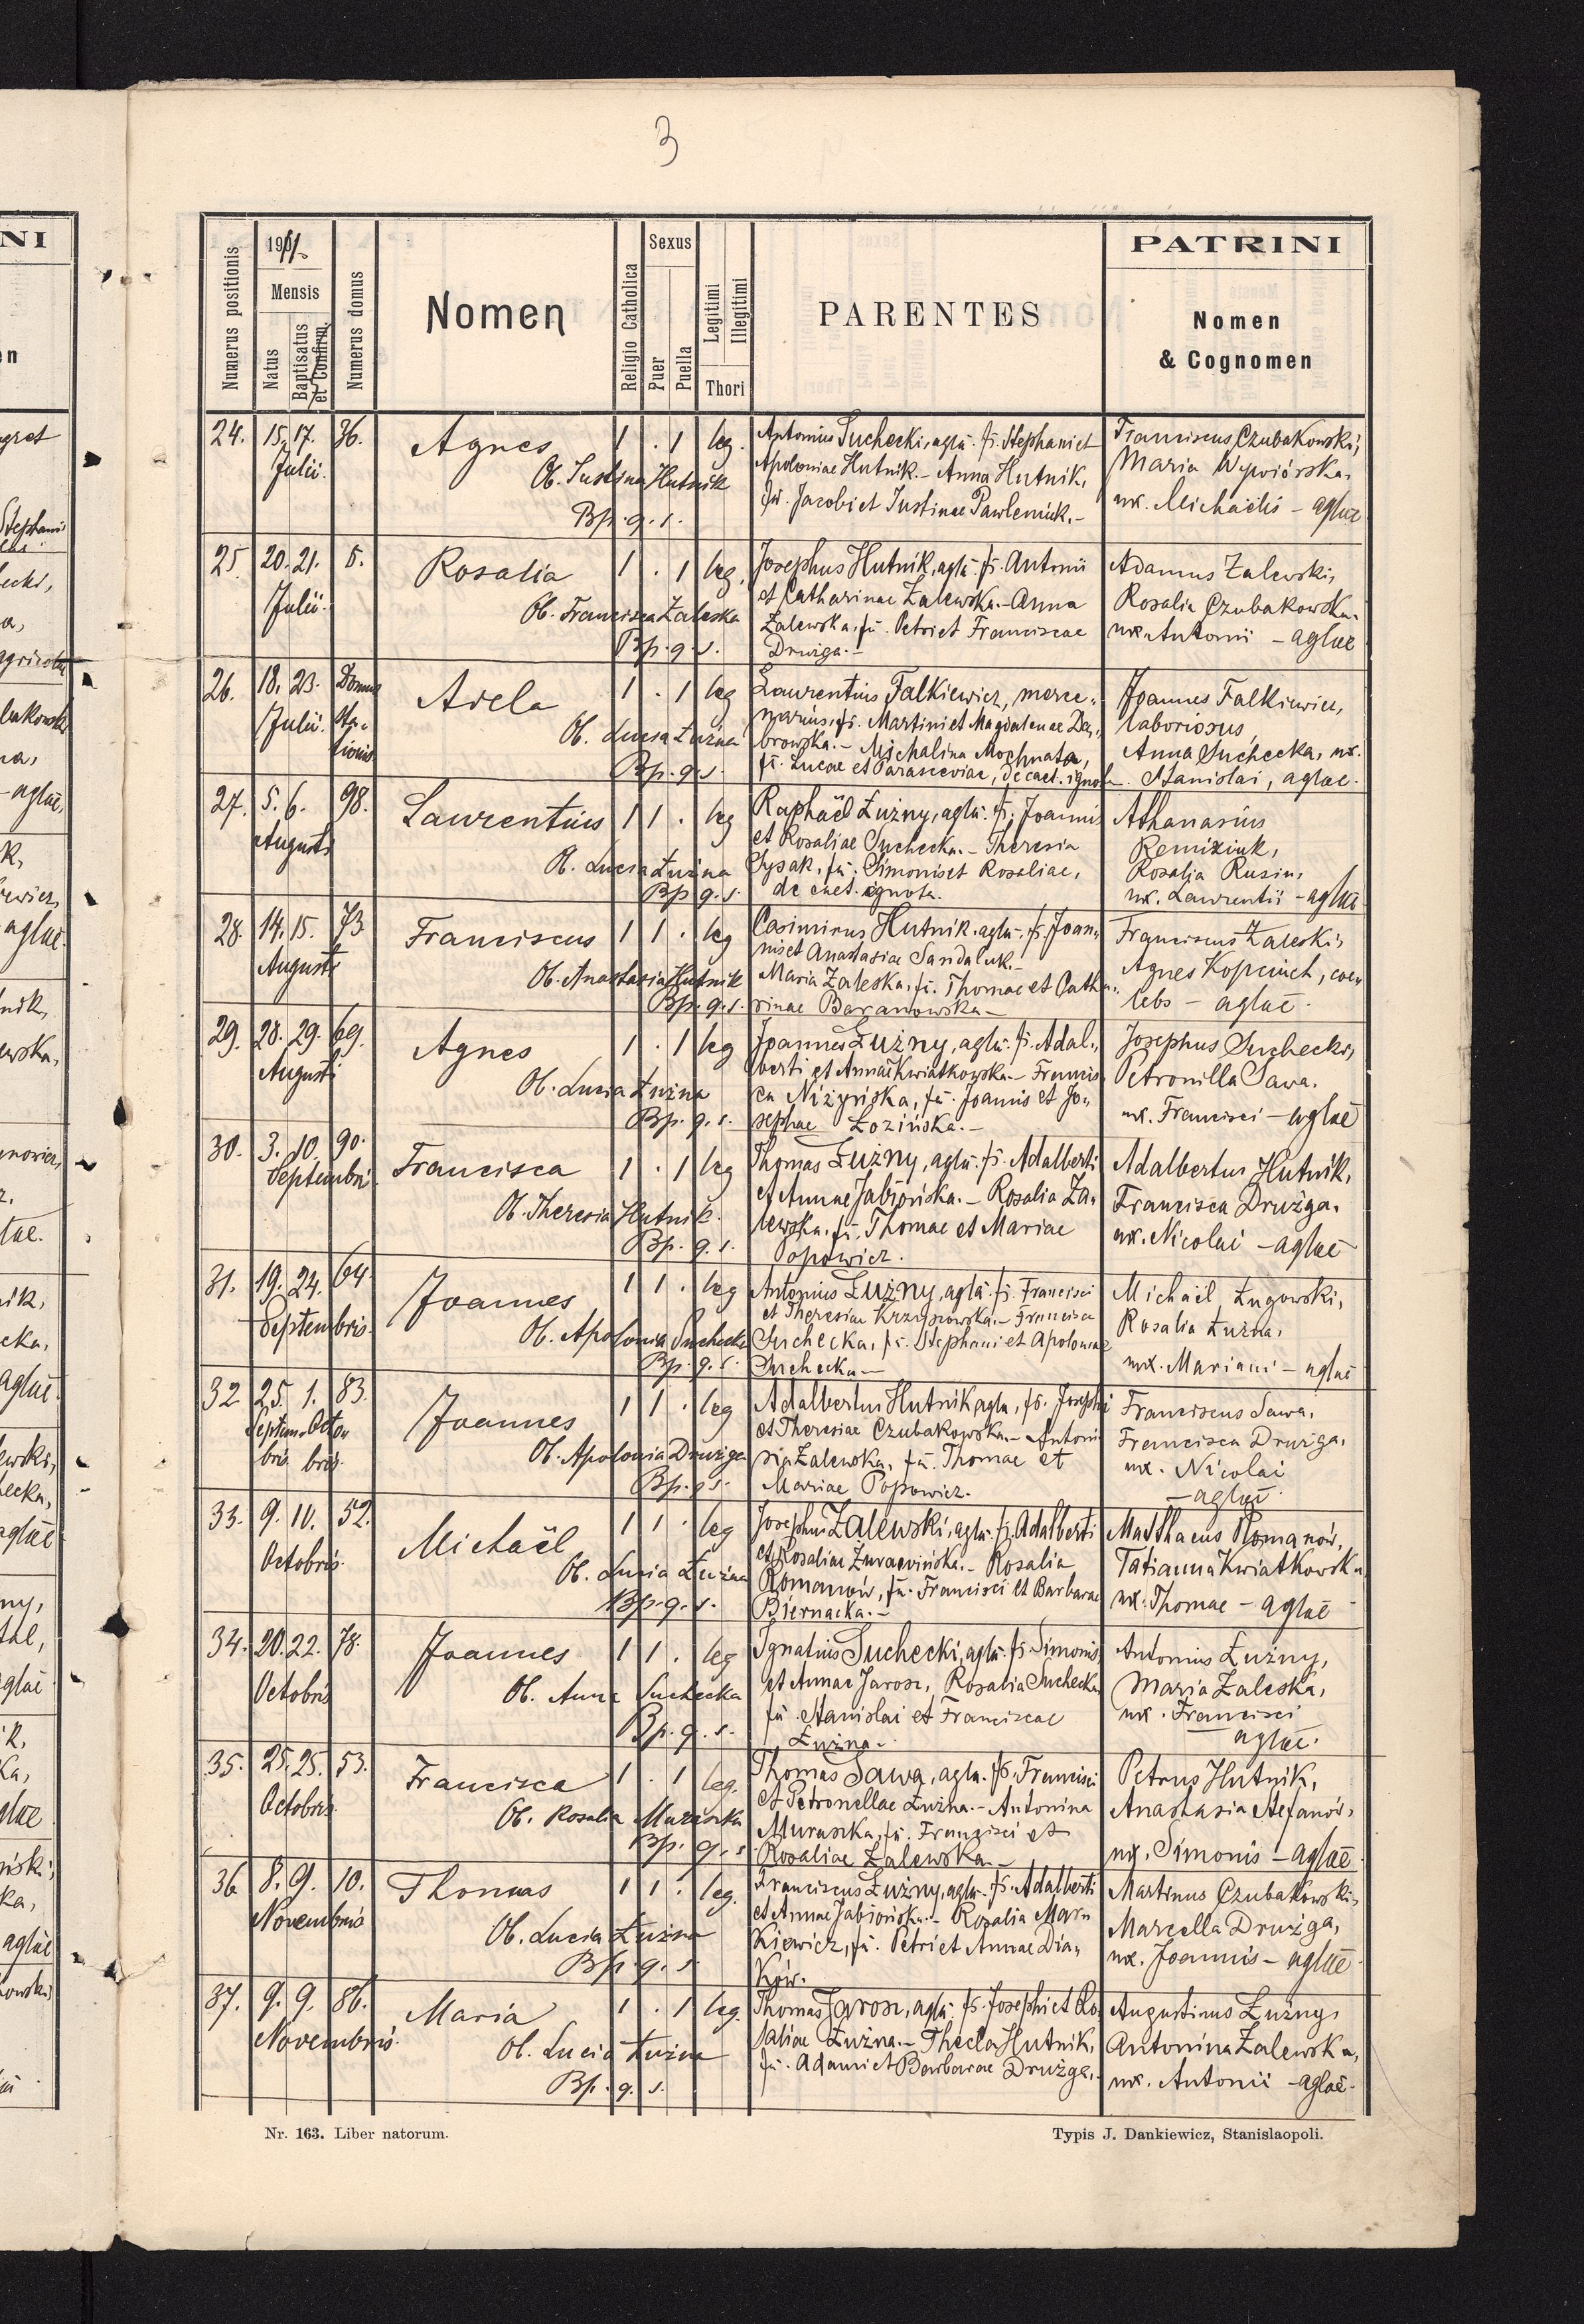 3
1911
Numerus positionis
Mensis
Natus
Baptisatus et Confirm.
Numerus domus
Nomen
Religio Catholica
Sexus
Puer
Puella
Legitimi
Illegitimi
Thori
PARENTES
PATRINI
Nomen
& Cognomen
24. 15. 17. 36. Agnes 1 . 1 leg.
Julii.
Ob. Justina Hutnik
Bp. q. s.
Antonius Suchecki, aglā. fs. Stephani et
Apoloniae Hutnik. - Anna Hutnik,
fā. Jacobi et Justinae Pawleniuk. -
Franciscus Czubakowski,
Maria Wywiórska,
ux. Michaëlis - aglae
25. 20. 21. 5. Rosalia 1 . 1 leg.
Julii.
Ob. Francisca Zaleska
Bp. q. s.
Josephus Hutnik, aglā. fs. Antonii
et Catharinae Zalewska. - Anna
Zalewska, fā. Petri et Franciscae
Drużga. -
Adamus Zalewski,
Rosalia Czubakowska,
ux. Antonii - aglae
26. 18. 23. Domus Adela 1 . 1 leg
Julii. sta-
tionis
Ob. Lucia Łużna
Bp. q. s.
Laurentius Falkiewicz, merce-
narius, fs. Martini et Magdalenae Da-
browska. - Michalina Mochnata,
fā. Lucae et Parasceviae, de caet. ignota.
Joannes Falkiewicz,
laboriosus,
Anna Suchecka, ux.
Stanislai, aglae.
27. 5. 6. 98. Laurentius 1 1 . leg
Augusti
Ob. Lucia Łużna
Bp. q. s.
Raphaël Łużny, aglā. fs. Joannis
et Rosaliae Suchecka. - Theresia
Sysak, fā. Simonis et Rosaliae,
de caet. ignota.
Athanasius
Remiziuk,
Rosalia Rusin,
ux. Laurentii - aglae
28. 14. 15. 73 Franciscus 1 1 . leg
Augusti
Ob. Anastasia Hutnik
Bp. q. s.
Casimirus Hutnik, aglā. fs. Joan-
nis et Anastasiae Sandaluk. -
Maria Zaleska, fā. Thomae et Catha-
rinae Baranowska -
Franciscus Zaleski,
Agnes Kopciuch, coe-
lebs - aglae.
29. 28. 29. 69. Agnes 1 . 1 leg
Augusti
Ob. Lucia Łużna
Bp. q. s.
Joannes Łużny, aglā. fs. Adal-
berti et Annae Kwiatkowska - Francis-
ca Niżyńska, fā. Joannis et Jo-
sephae Łozińska. -
Josephus Suchecki,
Petronilla Sawa,
ux. Francisci - aglae
30. 3. 10. 90. Francisca 1 . 1 leg
Septembris
Ob. Theresia Hutnik.
Bp. q. s.
Thomas Łużny, aglā. fs. Adalberti
et Annae Jabłońska. - Rosalia Za-
lewska, fā. Thomae et Mariae
Popowicz.
Adalbertus Hutnik,
Francisca Drużga,
ux. Nicolai - aglae
31. 19. 24. 64. Joannes 1 1 . leg
Septembris.
Ob. Apolonia Suchecka
Bp. q. s.
Antonius Łużny, aglā. fs. Francisci
et Theresiae Krzyszowska. - Francisca
Suchecka, fā. Stephani et Apoloniae
Suchecka -
Michaël Ługowski,
Rosalia Łużna,
ux. Mariani - aglae
32 25. 1. 83. Joannes 1 1 . leg
Septem- Octo-
bris bris.
Ob. Apolonia Drużga
Bp. q. s.
Adalbertus Hutnik, aglā, fs. Josephi
et Theresiae Czubakowska. - Antoni-
na Zalewska, fā. Thomae et
Mariae Popowicz.
Franciscus Sawa,
Francisca Drużga,
ux. Nicolai
- aglae.
33. 9. 10. 52. Michaël 1 1 . leg
Octobris.
Ob. Lucia Łużna
Bp. q. s.
Josephus Zalewski, aglā. fs. Adalberti
et Rosaliae Żurawińska. - Rosalia
Romanów, fā. Francisci et Barbarae
Biernacka. -
Matthaeus Romanów,
Tatianna Kwiatkowska
ux. Thomae - aglae
34. 20. 22. 78. Joannes 1 1 . leg
Octobris
Ob. Anna Suchecka
Bp. q. s.
Ignatius Suchecki, aglā. fs. Simonis
et Annae Jarosz, Rosalia Suchecka,
fā. Stanislai et Franciscae
Łużna.
Antonius Łużny,
Maria Zaleska,
ux. Francisci
aglae.
35. 25. 25. 53. Francisca 1 . 1 leg.
Octobris.
Ob. Rosalia Muraszka
Bp. q. s.
Thomas Sawa, aglā. fs. Francisci
et Petronellae Łużna. - Antonina
Muraszka, fā. Francisci et
Rosaliae Zalewska. -
Petrus Hutnik,
Anastasia Stefanów,
ux. Simonis - aglae.
36 8. 9. 10. Thomas 1 1 . leg.
Novembris
Ob. Lucia Łużna
Bp. q. s.
Franciscus Łużny, aglā. fs. Adalberti
et Annae Jabłońska. - Rosalia Mar-
kiewicz, fā. Petri et Annae Dia-
ków.
Martinus Czubakowski,
Marcella Drużga,
ux. Joannis - aglae.
37. 9. 9. 86. Maria 1 . 1 leg.
Novembris.
Ob. Lucia Łużna
Bp. q. s.
Thomas Jarosz, aglā. fs. Josephi et Ro-
saliae Łużna. - Thecla Hutnik,
fā. Adami et Barbarae Drużga. -
Augustinus Łużny,
Antonina Zalewska,
ux. Antonii - aglae.
Nr. 163. Liber natorum.
Typis J. Dankiewicz, Stanislaopoli.